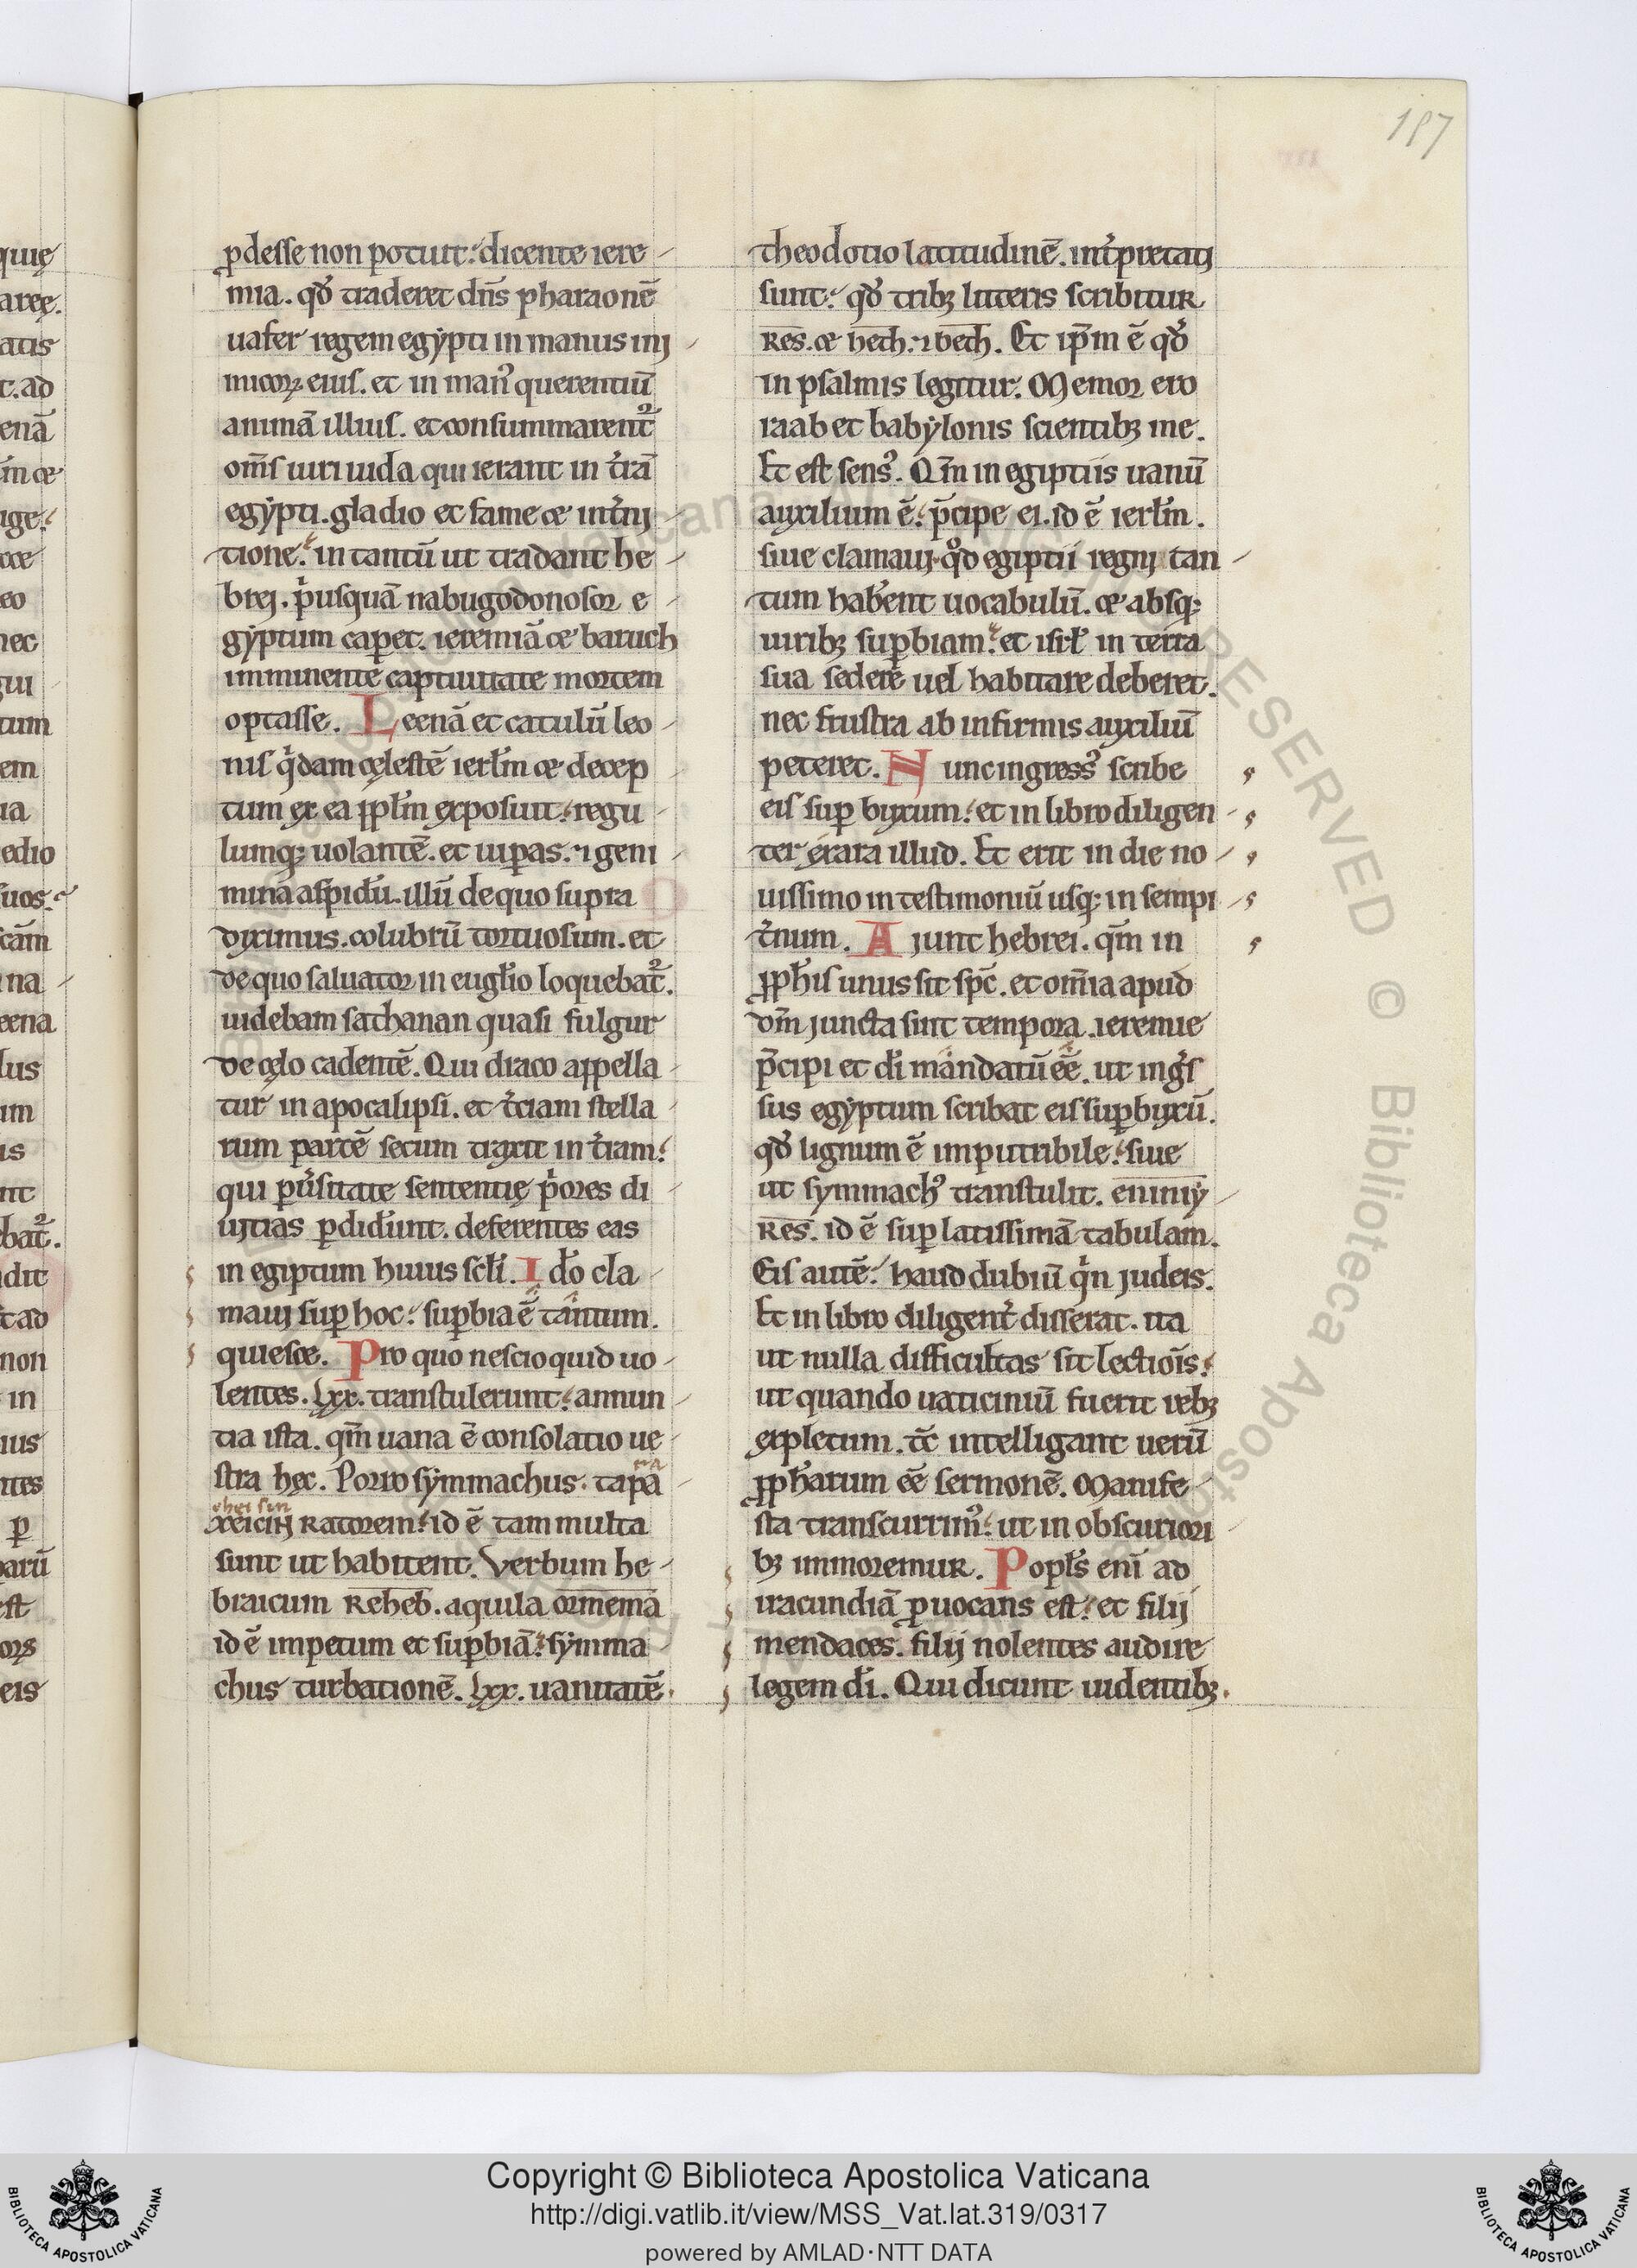 197
ꝓdesse non potuit. dicente iere
mia. qđ traderet dñs pharaonē
uafer regem egypti in manus inj
micoꝝ eius. et in man᷒ querentiū
animā illius. et consummarent᷑
om̄s uiri iuda qui ierant in t̄rā
egypti. gladio et fame ce int̄nj
tione. in tantū ut tradant he
brej. p̓usquā nabugodonosor e
gyptum caꝑet. ieremiā ce baruch
imminente captiuitate mortem
optasse. Leenā et catulū leo
nis q̓dam cęlestē ierl̄m ce decep
tum ex ea ꝓpl̄m exposuit. regu
lumq; uolantē. et uiꝑas. ⁊ geni
mina aspidū. illū de quo supra
diximus. colubrū tortuosum. et
de quo saluator in eugl̄io loquebat᷑.
uidebam sathanan quasi fulgur
de cęlo cadentē. Qui draco appella
tur in apocalipsi. et t̄ciam stella
rum partē secum traxit in t̄ram.
qui ꝑūsitate sententię p̓ores di
ujtias ꝑdiđunt. deferentes eas
in egiptum huius scl̄i. Iđo cla
mauj suꝑ hoc. suꝑbia ē tantum.
quiesce. Pro quo nescio quid uo
lentes. lxx. transtulerunt. annun
tia ista. qm̄ uana ē consolatio ue
stra hęc. Porro symmachus. tapa
xeicin ratorem. id ē tam multa
sunt ut habitent. Verbum he
braicum Reheb. aquila ormema
id ē impetum et suꝑbiā. symma
chus turbationē. lxx. uanitatē.
theodotio latitudinē. int̄pretatj
sunt. qđ tribꝫ litteris scribitur
Res. ce heth. ⁊ beth. Et ip̄m ē qđ
in psalmis legitur. Memor ero
raab et babylonis scientibꝫ me.
Et est sens᷒. Qm̄ in egiptiis uanū
auxilium ē. p̄cipe ei. id ē ierl̄m.
siue clamauj. qd̊ egiptii regnj tan
tum habent uocabulū. ce absq;
uiribꝫ suꝑbiam. et isrl̄ in terra
sua sedere uel habitare deberet.
nec frustra ab infirmis auxiliū
peteret. Nunc ingress᷒ scribe
eis suꝑ buxum. et in libro diligen
ter exara illud. Et erit in die no
uissimo in testimoniū usq; in sempi
t̄num. Ajunt hebrei. qm̄ in
ꝓph̄is unus sit sp̄c. et om̄ia apud
dm̄ juncta sint tempora. ieremie
p̄cipi et di̅ mandatū ēe. ut ing̓s
sus egyptum scribat eis suꝑ buxū.
qđ lignum ē imputribile. siue
ut symmach᷒ transtulit. eniniy
Res. id ē suꝑ latissimā tabulam.
Eis autē. haud dubiū q̓n judeis.
Et in libro diligent̄ disserat. ita
ut nulla difficultas sit lectioīs.
ut quando uaticiniū fuerit rebꝫ
expletum. tc̄ intelligant uerū
ꝓph̄arum ēe sermonē. Manife
sta transcurrim᷒. ut in obscuriori
bꝫ immoremur. Popl̄s enī ad
iracundiā ꝓuocans est. et filij
mendaces. filij nolentes audire
legem di̅. Qui dicunt uidentibꝫ.
Copyright © Biblioteca Apostolica Vaticana
http://digi.vatlib.it/view/MSS_Vat.lat.319/0317
powered by AMLAD·NTT DATA
BIBLIOTECA APOSTOLICA VATICANA
BIBLIOTECA APOSTOLICA VATICANA